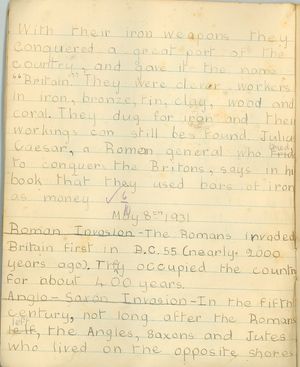 With their iron weapons they
conquered a great part of the
country, and gave it the name
"Britain." They were clever workers
in iron, bronze, tin, clay, wood and
coral. They dug for iron and their
workings can still be found. Julius
Caesar, a Roman general who tried
to conquer the Britons, says in his
book that they used bars of iron
as money
May 8th 1931
Roman Invasion - The Romans invaded
Britain first in B.C. 55 (nearly 2000
years ago). They occupied the country
for about 400 years.
Anglo - Saxon Invasion - In the fifth
century, not long after the Romans
left
, the Angles, Saxons and Jutes
who lived on the opposite shores